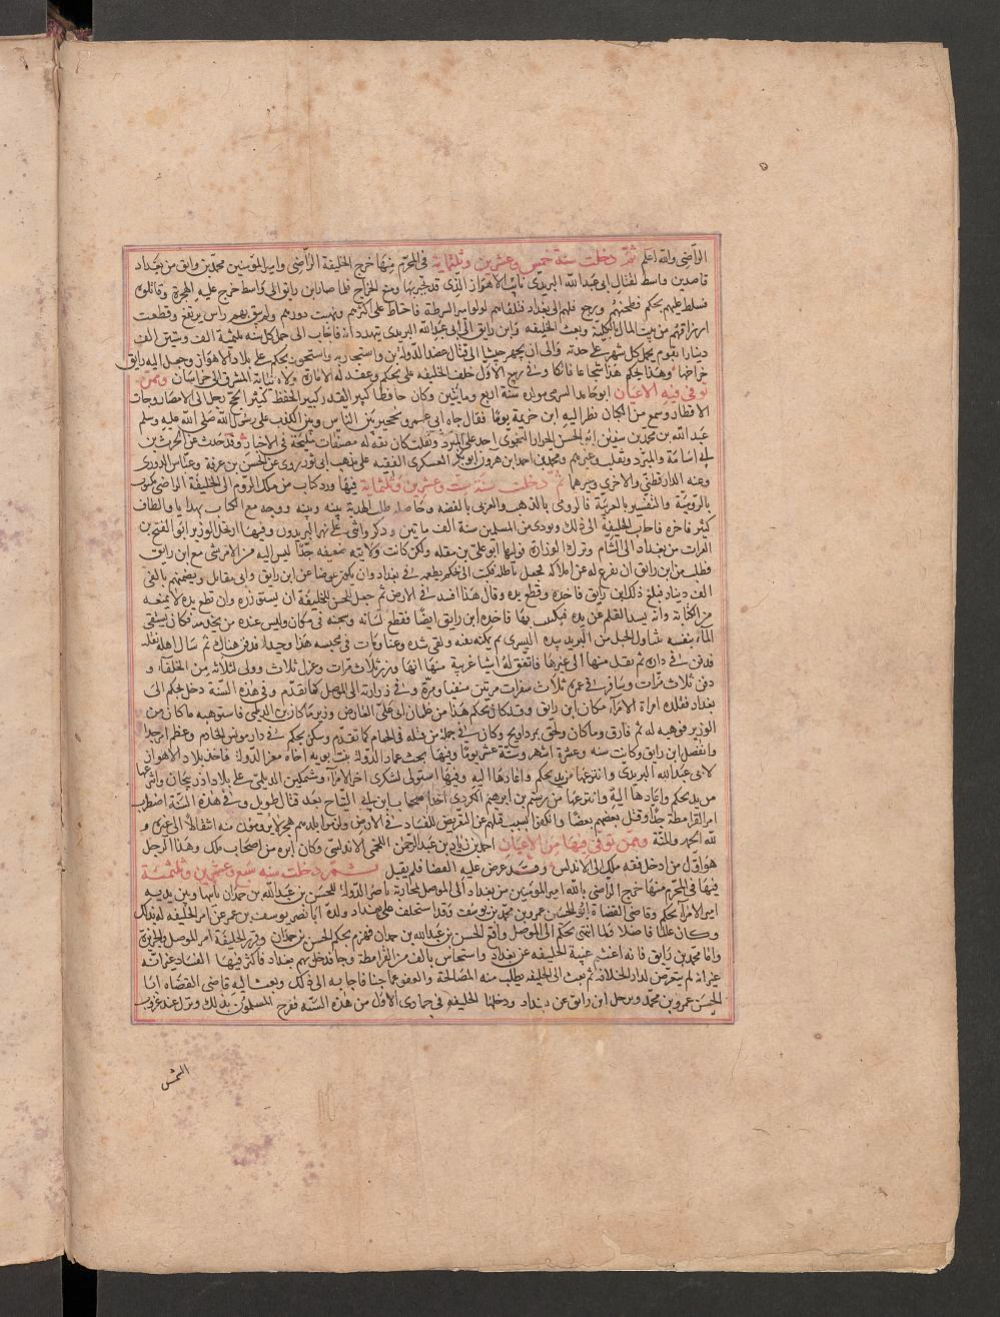 الراضى والله اعلم ثم دخلت سنة خمس وعشرين وثلثماية فى المحرم منها خرج الخليفة الراضى وامير المومنين محمد بن رايق من بغداد
قاصدين واسط لقتال ابى عبد الله البريدى نايب الاهواز الذى قد تجبر بها ومنع الخراج فلما صار ابن رايق الى واسط خرج عليه الحجرية وقاتلوه
فسلط عليهم بجكم فطحنهم ورجع فلهم الى بغداد فتلقاهم لولو امير الشرطة فاحتاط على اكثرهم ونهبت دورهم ولم يبق لهم راس يرتفع وقطعت
ارزاقهم من بيت المال بالكلية وبعث الخليفه وابن رايق الى ابى عبد الله البريدى يتهدد انه فاجاب الى حمل كل سنه ثلثمية الف وستين الف
دينارا يقوم بحمل كل شهر على حدته والى ان يجهز جيشا الى قتال عضد الدولة
خراجها وهذا بجكم هذا شجاعا فاتكا وفى ربيع الاول خلف الخليفه على بجكم وعقد له الامارة ولاه نيابة المشرق الى خراسان وممن
توفى فيه الاعيان ابو حامد الشرقى مولده سنة اربع ومايتين وكان حافظا كبير القدر كبير الحفظ كثير الحج رحل الى الامصار وجاب
الاقطار وسمع من الكبار نظر اليه ابن خزيمة يوما فقال حياة ابى بين الناس وبين الكذب على رسول الله صلى الله عليه وسلم
عبد الله بن محمد بن سفين ابو الحسن الخزاز النحوى احد على المبرد وثعلب وكان ثقه له مصنفات مليحة فى الاخبار وقد حدث عن الحرث بن
ابى اسامة والمبرد وثعلب وغيرهم ومحمد بن احمد ابن هرون ابو بكر العسكرى الفقيه على مذهب ابى ثور روى عن الحسن بن عرفة وعباس الدورى
وعنه الدارقطنى والاجرى وغيرهما ثم دخلت سنة ست وعشرين وثلثماية فيها ورد كتاب من ملك الروم الى الخليفة الراضى مكتوب
بالرومية والتفسير بالعربية فالرومى بالذهب والعربى بالفضه وحاصله طلب الهدية بينه وبينه ووجه مع الكتاب بهدايا والطاف
كثير فاخره فاجاب الخليفة الى ذلك وفودى من المسلمين سنة الاف ما بين ذكر وانثى على نهر البدندون وفيها ارتحل الوزير ابو الفتح بن
الفرات من بغداد الى الشام وترك الوزارة فوليها ابو على بن مقله ولكن كانت ولايته ضعيفه جدا ليس اليه من الامر شى مع ابن رايق
فطلب من ابن رايق ان يفرغ له عن املاكه فجعل يماطله فكتب الى بجكم يطمعه فى بغداد وان يكون عوضا عن ابن رايق
الف دينار فبلغ ذلك ابن رايق فاخذه وقطع يده وقال هذا افسد فى الارض ثم جعل يحسن للخليفة ان يستوزره وان قطع يده لا يمنعه
من الكتابة وانه يشد القلم على يده فيكتب بها فاخذه ابن رايق ايضا فقطع لسانه وسجنه فى مكان وليس عنده من يخدمه فكان يستقى
الماء بنفسه يتناول الحبل من البير بيده اليسرى ثم يمسكه بفيه ولقى شده وعنا ومات فى محبسه هذا وحيدا فدفن هناك ثم سال اهله نقله
فدفن فى داره ثم نقل منها الى غيرها فاتفق له اشيا غريبة منها انها وزر ثلاث مرات وعزل ثلاث وولى لثلاثه من الخلفآ و
دفن ثلاث مرات وسافر فى عمره ثلاث سفرات مرتين منفيا ومرة فى وزارته الى الموصل كما تقدم وفى هذه السنة دخل بجكم الى
بغداد فقلده امراة الامرآ مكان ابن رايق وقد كان بجكم هذا من غلمان ابى على العارض وزير ماكان بن الديلمى فاستوهبه ماكان من
الوزير فوهبه له ثم فارق وماكان ولحق بمرداويج وكان فى جملة من قتله فى الحمام كما تقدم وسكن بجكم فى دار مونس الخادم وعظم امره جدا
وانفصل ابن رايق وكانت سنه وعشرة اشهر وستة عشر يوما وفيها بعث عماد الدولة بن بويه اخاه معز الدولة فاخذ بلاد الاهواز
لابى عبد الله البريدى وانتزعها من يد بجكم واعادها اليه وفيها استولى لشكرى احد الامرآ وشمكير الديلمى على بلاد اذربيجان وانتزعها
من يد بجكم واعادها اليه وانتزعها من رستم بن ابرهيم الكردى احد اصحاب ابن ابى الساج بعد قتال طويل وفى هذه السنة اضطرب
امر القرامطة جدا وقتل بعضهم بعضا وانكفوا بسبب ذلك عن التعرض للفساد فى الارض ولزموا بلدهم هجر لا يرومون منه انتقالا الى غيره و
لله الحمد والمنة وممن توفى فيها من الاعيان احمد بن زياد بن عبد الرحمن اللخمى الاندلسى وكان ابوه من اصحاب ملك وهذا الرجل
هو اول من ادخل فقه ملك الى الاندلس وقد عرض عليه القضا فلم يقبل ثم دخلت سنه سبع وعشرين وثلثمئة
فيها فى المحرم منها خرج الراضى بالله امير المومنين من بغداد الى الموصل لمحاربة ناصر الدولة للحسن بن عبد الله بن حمدان نايبها وبين يديه
امير الامرآ بجكم وقاضى القضاة ابو الحسين عمرو بن محمد بن يوسف وقد استخلف على بغداد ولده ابا نصر يوسف بن عمر عن امر الخليفه له بذلك
وكان عالما فاضلا فلما انتهى بجكم الى الموصل واقع للحسن بن عبد الله بن حمدان فهزم بجكم الحسن بن حمدان وقرر الخليفة امر الموصل والجزيرة
واما محمد بن رايق فانه اغتنم غيبة الخليفه عن بغداد واستجاش بالف من القرامطة وجا فدخل بهم بغداد فاكثر فيها الفساد غير انه
غير انه لم يتعرض لدار الخلافة ثم بعث الى الخليفه يطلب منه المصالحة والعفو عما جنا فاجابه الى ذلك وبعث اليه قاضى القضاه ابا
الحسين عمرو بن محمد ورحل ابن رايق عن بغداد ودخلها الخليفه فى جمادى الاول من هذه السنه ففرح المسلمون بذلك ونزل عند غروب
الشمس